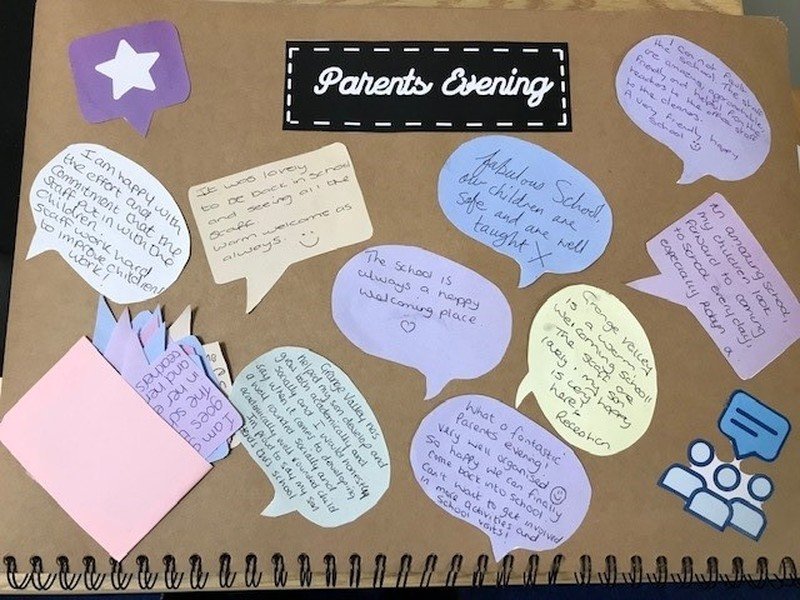 Parents Evening
I cannot fault
the school. The staff
are amazing, approachable,
friendly and helpful from the
teachers to the office staff
to the cleaners.
A very friendly, happy
school
I am happy with
the effort and
commitment that the
staff put in with the
children.
staff work hard
to improve children
work!
It was lovely
to be back in school
and seeing all the
staff.
warm welcome as
always.
fabulous School,
our children are
safe and are well
taught X
An amazing school,
my children look
forward to coming
to school everyday,
especially Robyn
The school is
always a happy
welcoming place.
Grange Valley
is a warm,
welcoming school!
The staff are
lovely, my son
is very happy
here!
Reception
Grange Valley has
helped my son develop and
grow both academically and
socially and I would honestly
say when it comes to developing
a well rounded socially and
academically well rounded child
I am proud to say my son
attends this school
What a fantastic
parents evening!
Very well organised
so happy we can finally
come back into school
Can't wait to get involved
in more activities and
school visits!
I am
goes
in the sch
and her
teachers